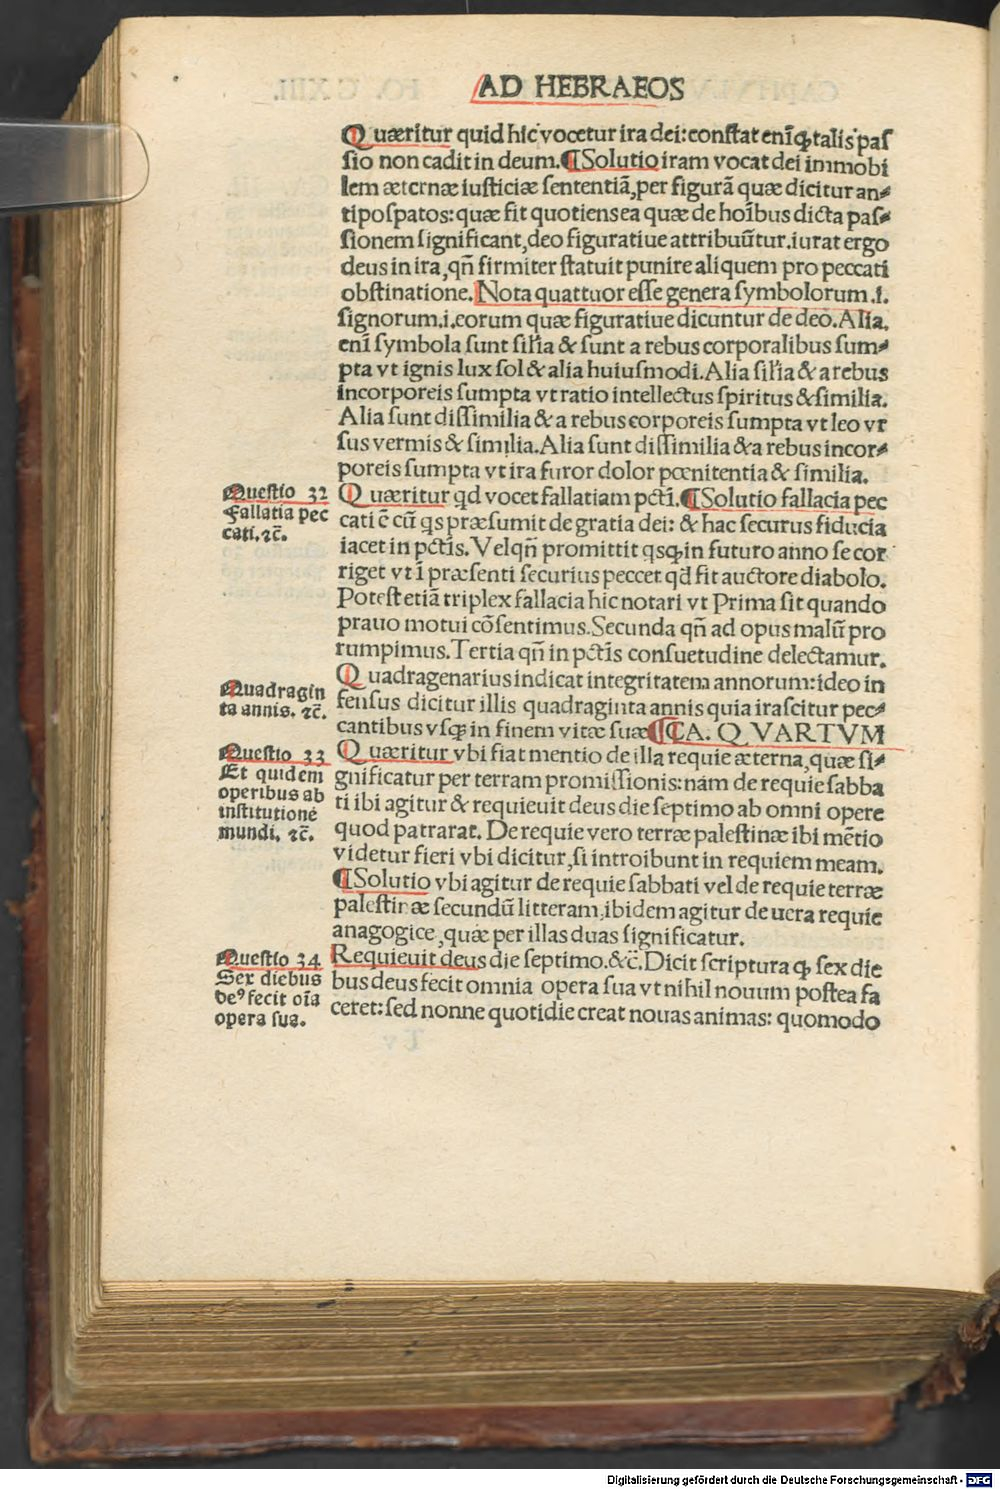 AD HEBRAEOS
Quæritur quid hic vocetur ira dei: conſtat enī ꝙ talis paſ
ſio non cadit in deum. ¶ Solutio iram vocat dei immobi
lem æternæ iuſticiæ ſententiā, per figurā quæ dicitur an⸗
tipoſpatos: quæ fit quotiens ea quæ de hoībus dicta paſ⸗
ſionem ſignificant, deo figuratiue attribuūtur. iurat ergo
deus in ira, qñ firmiter ſtatuit punire aliquem pro peccati
obſtinatione. Nota quattuor eſſe genera ſymbolorum .ſ.
ſignorum .i. eorum quæ figuratiue dicuntur de deo. Alia.
enī ſymbola ſunt ſiľia & ſunt a rebus corporalibus ſum⸗
pta vt ignis lux ſol & alia huiuſmodi. Alia ſiľia & a rebus
incorporeis ſumpta vt ratio intellectus ſpiritus & ſimilia.
Alia ſunt diſſimilia & a rebus corporeis ſumpta vt leo vr
ſus vermis & ſimilia. Alia ſunt diſſimilia & a rebus incor⸗
poreis ſumpta vt ira furor dolor pœnitentia & ſimilia.
Queſtio 32
Fallatia pec
cati. ⁊c̄.
Quæritur qd vocet fallatiam pctī. ¶ Solutio fallacia pec
cati ē cū qs præſumit de gratia dei: & hac ſecurus fiducia
iacet in pctīs. Vel qñ promittit qſꝙ in futuro anno ſe cor
riget vt ī præſenti ſecurius peccet qd fit auctore diabolo.
Poteſt etiā triplex fallacia hic notari vt Prima ſit quando
prauo motui cōſentimus. Secunda qñ ad opus malū pro
rumpimus. Tertia qñ in pctīs conſuetudine delectamur.
Quadragin
ta annis. ⁊c̄.
Quadragenarius indicat integritatem annorum: ideo in
fenſus dicitur illis quadraginta annis quia iraſcitur pec⸗
cantibus vſꝙ in finem vitæ ſuæ ¶ CA. QVARTVM
Queſtio 33
Et quidem
operibus ab
inſtitutione
mundi. ⁊c̄.
Quæritur vbi fiat mentio de illa requie æterna, quæ ſi⸗
gnificatur per terram promiſſionis: nam de requie ſabba
ti ibi agitur & requieuit deus die ſeptimo ab omni opere
quod patrarat. De requie vero terræ paleſtinæ ibi mētio
videtur fieri vbi dicitur, ſi introibunt in requiem meam.
¶ Solutio vbi agitur de requie ſabbati vel de requie terræ
paleſtinæ ſecundū litteram, ibidem agitur de uera requie
anagogice, quæ per illas duas ſignificatur.
Queſtio 34
Sex diebus
deꝰ fecit oīa
opera ſua.
Requieuit deus die ſeptimo. &c̄. Dicit ſcriptura ꝙ ſex die
bus deus fecit omnia opera ſua vt nihil nouum poſtea fa
ceret: ſed nonne quotidie creat nouas animas: quomodo
Digitalisierung gefördert durch die Deutsche Forschungsgemeinschaft - DFG